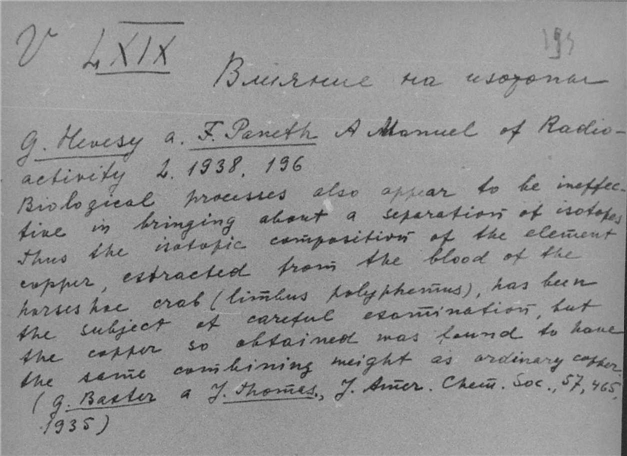 V LXIX 194
Влияние на изотопы
G. Hevesy a. F. Paneth A Manuel of Radio-
activity L. 1938, 196
Biological processes also appear to be ineffec-
tive in bringing about a separation of isotopes
Thus the isotopic composition of the element
copper, extracted from the blood of the
horseshoe crab (limbus polyphemus), has been
the subject of careful examination, but
the copper so obtained was found to have
the same combining weight as ordinary copper.
(G. Baxter a J. Thomas, J. Amer. Chem. Soc., 57, 465,
1935)